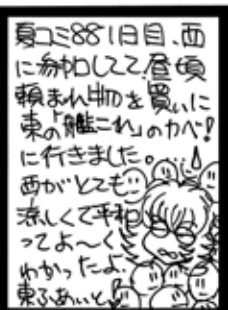 夏コミ88 1日目、西
に参加してて、昼頃
頼まれ物を買いに
東の「艦これ」のカベ!
に行きました。
西がとても
涼しくて平和
ってよ〜く
わかったよ。
東ふぁいと